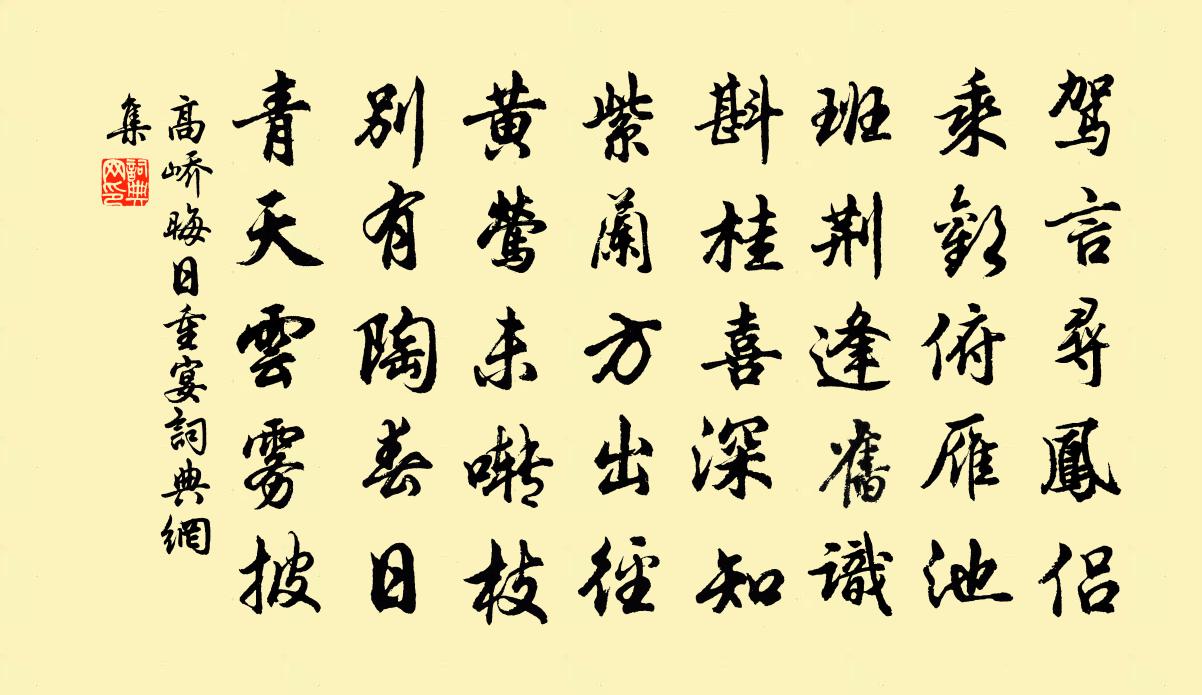 駕言尋鳳侶
乘歡俯雁池
班荆逢舊識
斟桂喜深知
紫蘭方出徑
黄鶯未囀枝
別有陶春日
青天雲霧披
高嶠晦日重宴詞典網
集
詞典網印